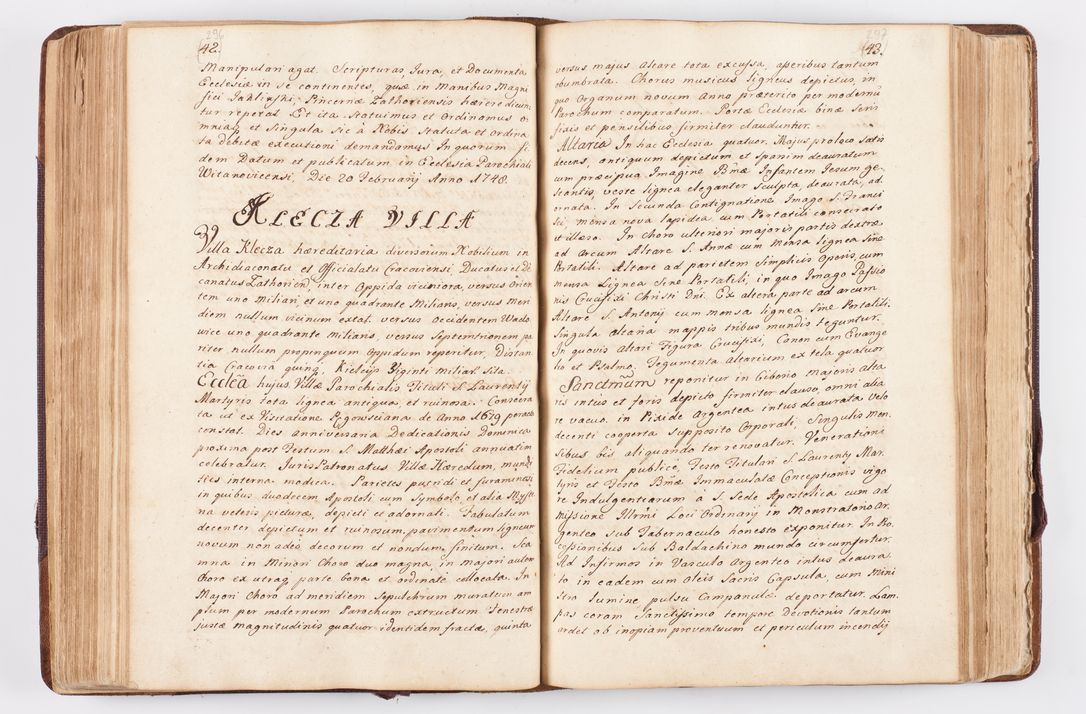 296
42.
Manipulari agat. Scripturas, Jura, et Documenta
Ecclesiæ in se continentes, quæ in manibus Magni
fici Jaklinski, Pincernæ Zathoriensis hærere dicun
tur reperat Et ita statuimus et Ordinamus o
mniaq et singula sic à Nobis statuta et ordina
ta debitæ executioni demandamus In quorum fi
dem Datum et publicatum in Ecclesia Parochiali
Witanovicensi. Die 20 Februarij Anno 1748.
KLECZA VILLA
Villa Klecza hæreditaria diversorum Nobilium in
Archidiaconatu et Officialatu Cracoviensi, Ducatus et De
canatus Zathorien, inter Oppida viciniora, versus Orien
tem uno miliari, et uno quadrante Milians, versus meri
diem nullum vicinum extat. versus Occidentem Wado
wice uno quadrante milians, versus Septemtrionem pa
riter, nullum propinquum Oppidum reperitur, Distan
tia Cracovia quinq, Kielcijs Viginti miliar. sita.
Ecclẽa hujus Villæ Parochialis Tituli S. Laurentij
Martyris tota lignea antiqua, et ruinosa. Consecra
ta ut ex Visitatione Rzgowsciana de Anno 1679 peracta
constat. Dies anniversaria Dedicationis Dominica
proxima post Festum S. Matthæi Apostoli annuatim
celebratur. Juris Patronatus Villæ Hæredum, mundi
ties interna modica. Parietes putridi et foraminosi
in quibus duodecem Apostoli cum Symbolo, et alia Myste
na veteris picturæ, depicti et adornati. Tabulatum
decenter depictum et ruinosum, pavimentum ligneum
novum non adeò decorum et nondum finitum. Sca
mna in Minori Choro duo magna, in majori autem
Choro ex utraq parte bona et ordinatè collocata. In
Majori Choro ad meridiem Sepulchrum muratum am
plum per modernum Parochum extructum Fenestræ
justæ magnitudinis quatuor identidem fractæ, quinta
297
43.
versus majus altare tota excussa, asseribus tantum
obumbrata. Chorus musicus ligneus depictus, in
quo Organum novum Anno præterito per modernũ
Parochum comparatum. Portæ Ecclesiæ binæ seris
fixis et pensilibus firmiter clauduntur.
Altaria In hac Ecclesia quatuor. Majus pro loco satis
decens, antiquum depictum et sparsim deauratum
cum præcipua Imagine Bmæ Infantem Jesum ge-
stantis, veste lignea eleganter sculpta, deaurata, ad.
ornata. In secunda Contignatione Imago S. Franci
sci, mensa nova lapidea cum Portatili consecrato
et illæso. In choro ulteriori majoris partis dextræ
ad Arcum Altare S. Annæ cum mensa lignea sine
Portatili. Altare ad parietem Simplicis Operis, cum
mensa Lignea sine Portatili, in quo Imago Passio
nis Crucifixi Christi Dni. Ex altera parte ad arcum
Altare S. Antonij cum mensa lignea sine Portatili.
Singula altaria mappis tribus mundis teguntur.
In quovis altari Figura Crucifixi, Canon cum Evange
lio et Psalmo. Tegumenta Altarium ex tela quatuor.
Sanctmũm reponitur in Ciborio majoris alta
ris intus et foris depicto firmiter clauso, omni alia
re vacuo. in Pixide Argentea intus deaurata Velo
decenti cooperta supposito Corporali, Singulis Men.
sibus bis aliquando ter renovatur. Venerationi
Fidelium publicæ, Festo Titulari S. Laurenty Mar.
tyris et Festo Bmæ Immaculatæ Conceptionis vigo
re Indulgentiarum à S. Sede Apostolica cum ad
missione Illrmi Loci Ordinarij in Monstratorio Ar.
genteo sub Tabernaculo honesto exponitur. In Pro.
cessionibus Sub Baldachino mundo circumfertur.
Ad Infirmos in Vasculo Argenteo intus deaura
to in eadem cum Oleis Sacris Capsula, cum Mini
stro lumine pulsu Campanulæ deportatur. Lam.
pas coram Sanctissimo tempore Devotionis tantum
ardet ob inopiam proventuum et periculum incendij